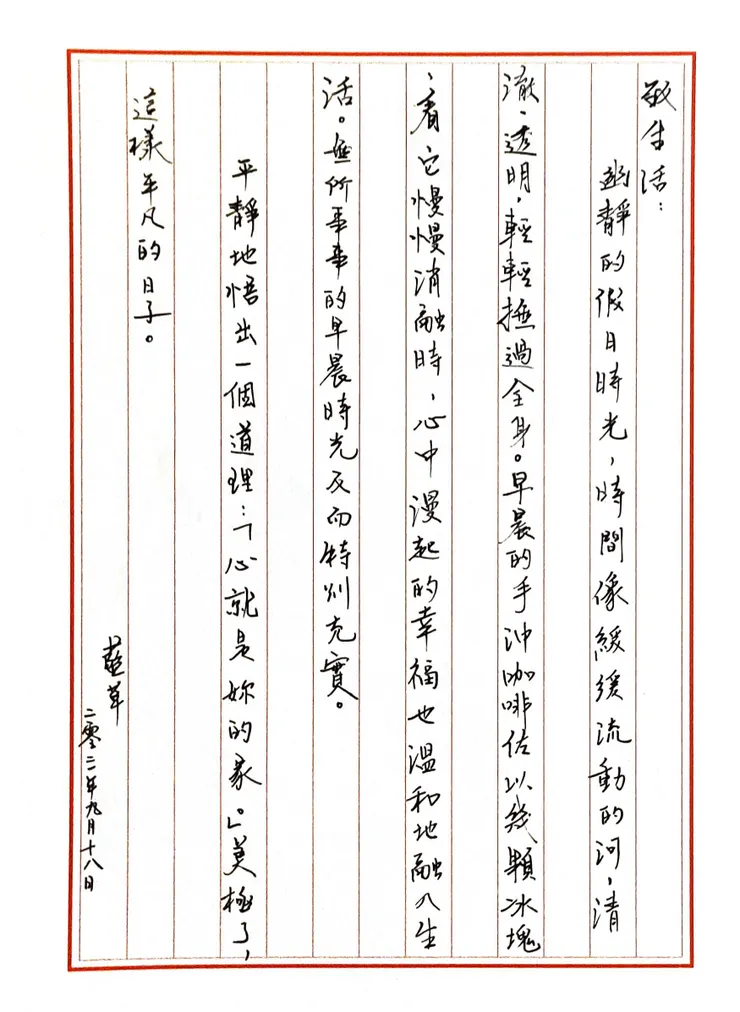 致生活：
幽靜的假日時光，時間像緩緩流動的河，清
澈、透明，輕輕撫過全身。早晨的手沖咖啡佐以幾顆冰塊
，看它慢慢消融時，心中漫起的幸福也溫和地融入生
活。無所事事的早晨時光反而特別充實。
平靜地悟出一個道理：「心就是妳的家。」美極了，
這樣平凡的日子。
藍草
二零二二年九月十八日